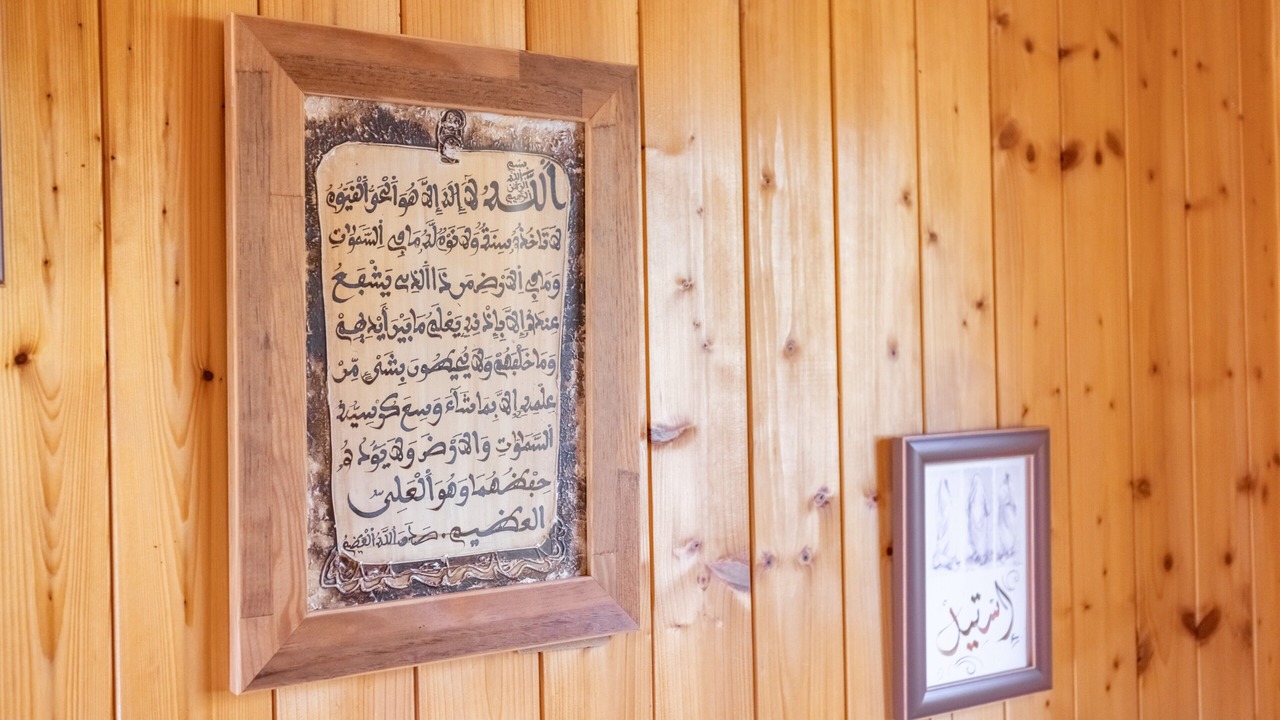 بسم الله الرحمن الرحيم
اَللَّهُ لَا إِلَهَ إِلَّا هُوَ اَلْحَيُّ اَلْقَيُّومُ
لَا تَاخُذُهُ سِنَةٌ وَلَا نَوْمٌ لَّهُ مَا فِي اِلسَّمَوَاتِ
وَمَا فِي اِلَارْضِ مَن ذَا اَلذِي يَشْفَعُ
عِندَهُ إِلَّا بِإِذْنِهِ يَعْلَمُ مَا بَيْنَ أَيْدِيهِمْ
وَمَا خَلْفَهُمْ وَلَا يُحِيطُونَ بِشَيْءٍ مِّنْ
عِلْمِهِ إِلَّا بِمَا شَاءَ وَسِعَ كُرْسِيُّهُ
اُلسَّمَوَاتِ وَالَارْضَ وَلَا يَؤُدُهُ
حِفْظُهُمَا وَهُوَ اَلْعَلِيُّ
العظيم. صدق الله العظيم
إستيل